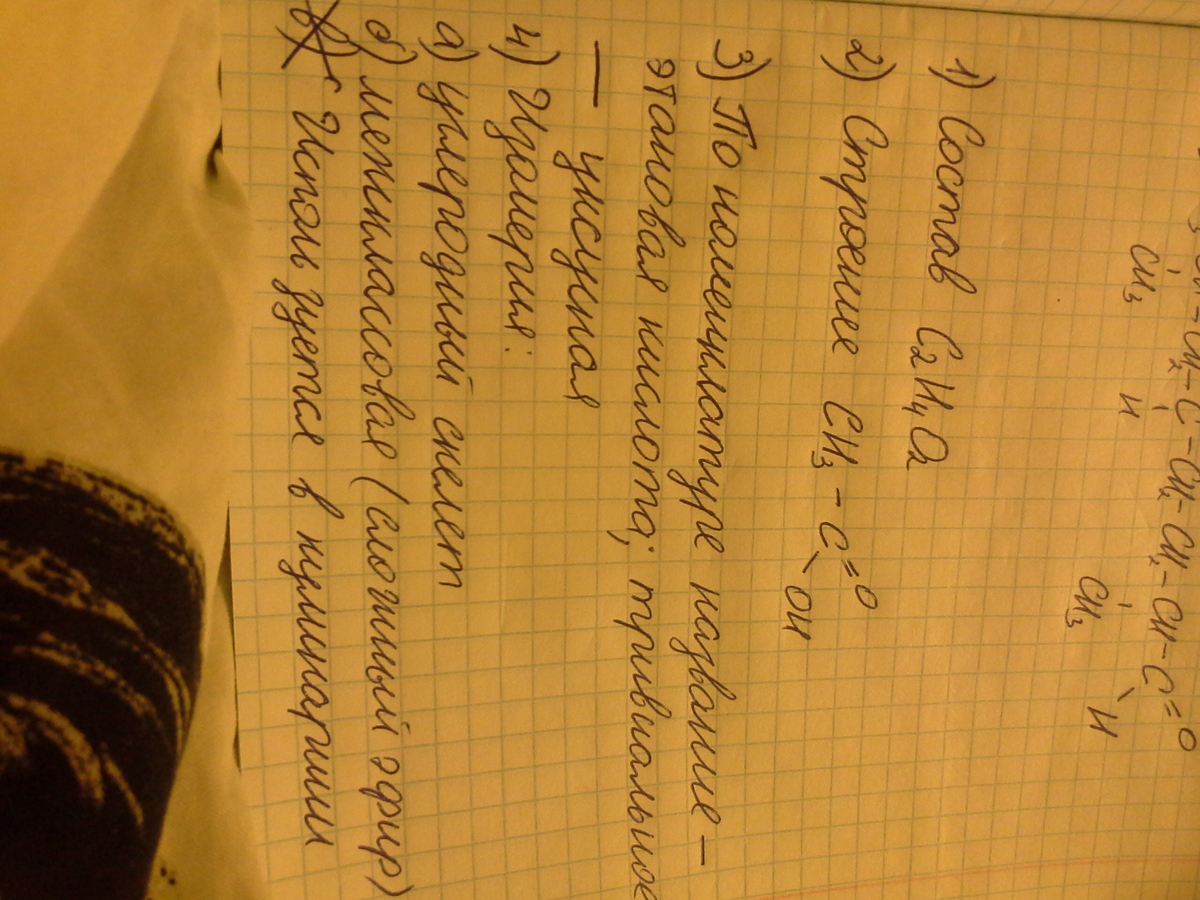 CH₃
CH₃
H
1) Состав C₂H₄O₂
2) Строение CH₃ – C
=O
\ OH
3) По номенклатуре название –
этановая кислота; тривиальное
— уксусная
4) Изомерия:
а) углеродный скелет
б) межклассовая (сложный эфир)
5) Используется в кулинарии